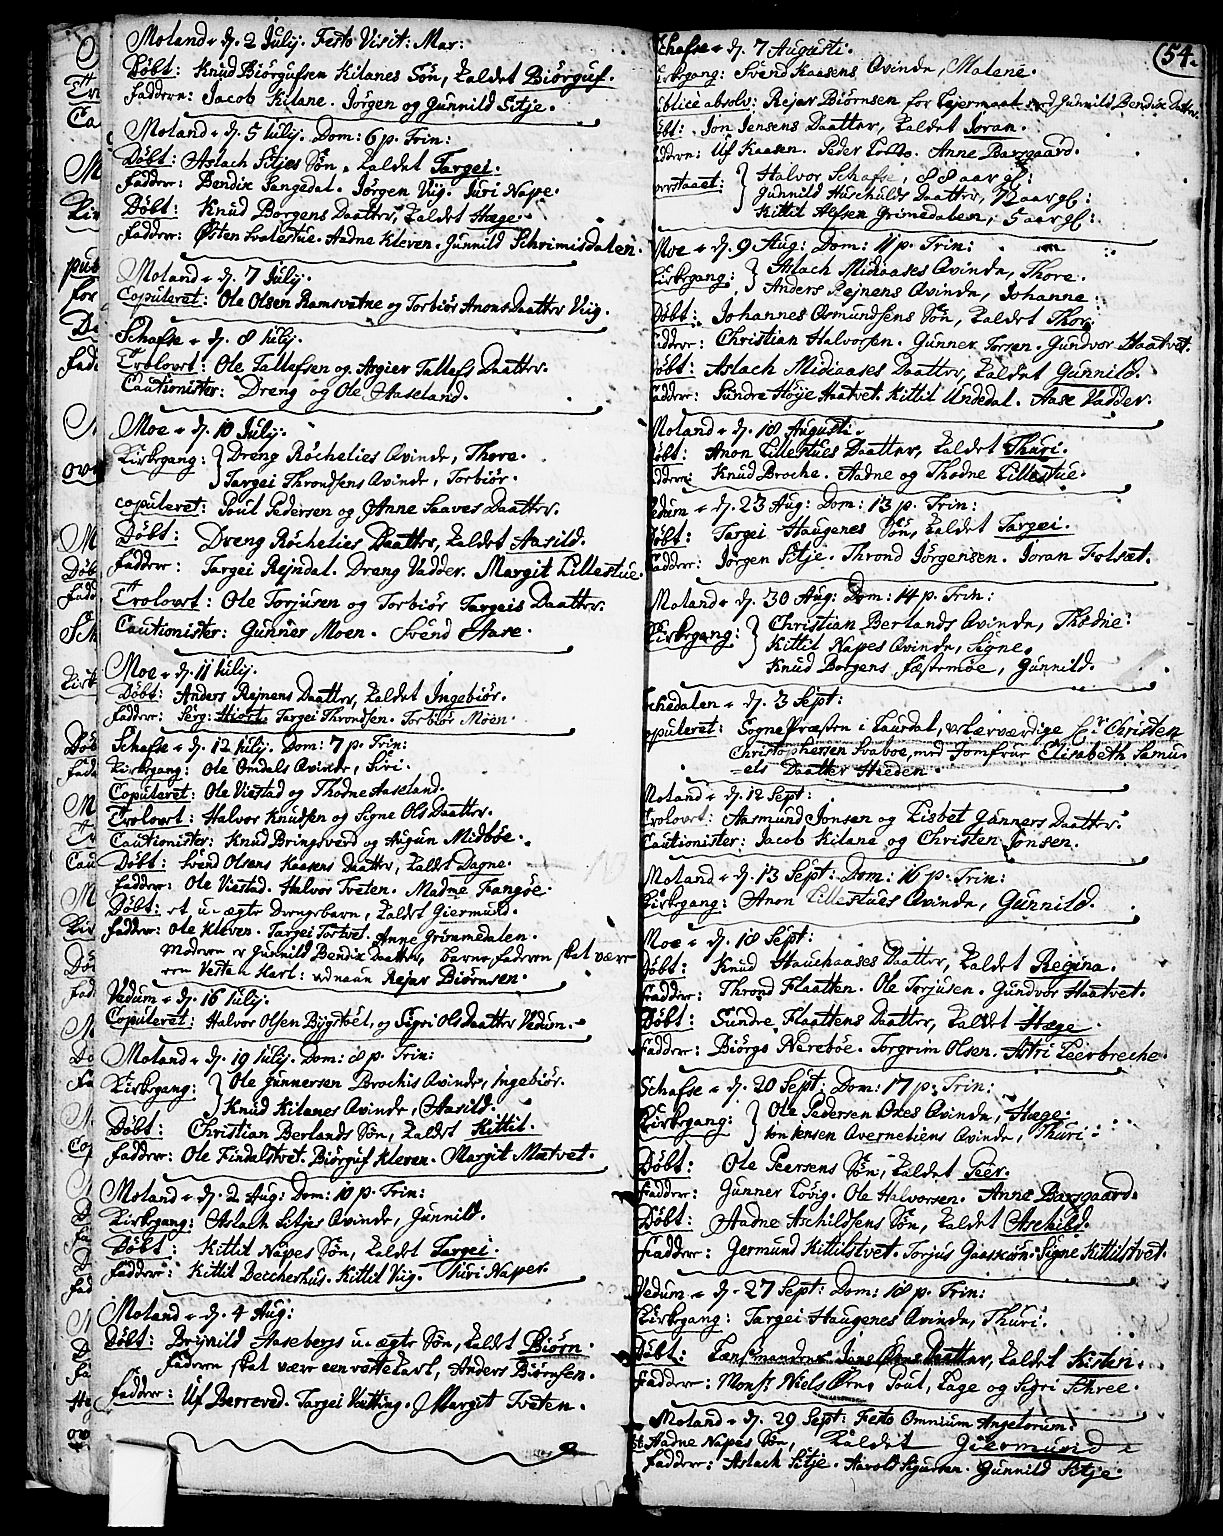 Moland d. 2 July. Festo Visit: Mar:
Döbt: Knud Biörgufsen Kilanes Sön, kaldet Biörguf.
Faddere: Jacob Kilane. Jörgen og Gunnild Sitje.
Moland d. 5 July. Dom: 6 p. Trin:
Döbt: Aslach Sitjes Sön, kaldet Targei.
Faddere: Bendix Sangedal. Jörgen Viig. Juri Nape.
Döbt: Knud Borgens Daatter, kaldet Hæge.
Faddere: Østen Svalestue. Aadne Kleven. Gunnild Schrimisdalen.
Moland d. 7 July.
Copuleret: Ole Olsen Ramsvatne og Torbiör Anons Daatter Viig.
Schafse d. 8 July.
Trolovet: Ole Tallefsen og Asgier Tallefs Daatter.
Cautionister: Dreng og Ole Aaseland.
Moe d. 10 July.
Kirkegang: Dreng Röchelies Qvinde, Thore.
Targei Throndsens Qvinde, Torbiör.
Copuleret: Poul Pedersen og Anne Saaves Daatter.
Döbt: Dreng Röchelies Daatter, kaldet Aasild.
Faddere: Targei Rejndal. Dreng Vadder. Margit Lillestue.
Trolovet: Ole Torjusen og Torbiör Targeis Daatter.
Cautionister: Gunner Moen. Svend Aase.
Moe d. 11 July.
Döbt: Anders Rejnens Daatter, kaldet Ingebiör.
Faddere: Serg: Hiorte Targei Throndsen. Torbiör Moen.
Schafse d. 12 July. Dom: 7 p. Trin:
Kirkegang: Ole Omdals Qvinde, Siri.
Copuleret: Ole Viestad og Thodne Aaseland.
Trolovet: Halvor Knudsen og Signe Ols Daatter.
Cautionister: Knud Bringsverd og Augun Midböe.
Döbt: Svend Olsens Kaasens Daatter, kaldet Dagne.
Faddere: Ole Viestad. Halvor Tveten. Madme Fangöe.
Döbt: et u-ægte Drengebarn, kaldet Giermund.
Faddere: Ole Kleven. Targei Tortvet. Anne Grimmedalen.
Moderen er Gunnild Bendix Daatter, barnefaderen skal være
een Vesta Karl: ved naun Rejar Biörnsen.
Vedum d. 16 July.
Copuleret: Halvor Olsen Bygstöel, og Sigri Ols Daatter Vedum.
Moland d. 19 July. Dom: 8 p. Trin:
Kirkegang: Ole Gunnersen Brochis Qvinde, Ingebiör.
Knud Kilanes Qvinde, Aasild.
Döbt: Christian Berlands Sön, kaldet Kittil.
Faddere: Ole Findalstvet. Biörguf Kleven. Margit Mietvet.
Moland d. 2 Aug: Dom: 10 p. Trin:
Kirkegang: Aslach Sitjes Qvinde, Gunnild.
Döbt: Kittil Napes Sön, kaldet Targei.
Faddere: Kittil Beccherhus. Kittil Viig. Juri Naper.
Moland d. 4 Aug:
Döbt: Brynild Aasebergs u-ægte Sön, kaldet Biörn.
Faderen skal være een vesta karl, Anders Biörnsen.
Faddere: Uf Berreved. Targei Vutting. Margit Tveten.
54.
Schafse d. 7 Augusti.
Kirkegang: Svend Kaasens Qvinde, Malene.
Publice absolv: Rejar Biörnsen for Lejermaal med Gunnild Bendix Datter.
Döbt: Jon Jensens Daatter, kaldet Joran.
Faddere: Uf Kaasen. Peder Anne Barsgaard.
Halvor Schafse, 88 aar gl:
Gunnild Huschulds Daatter, 72 aar gl:
Kittil Grimedalen, 5 aar gl:
Moe d. 9 Aug: Dom: 11 p. Trin:
Kirkegang: Aslach Midiaases Qvinde, Thore.
Anders Rejnens Qvinde, Johanne:
Döbt: Johannes Osmundsens Sön, kaldet Thor.
Faddere: Christian Halvorsen. Gunner Torsen. Gundvor Haatvet.
Döbt: Aslach Midiaases Daatter, kaldet Gunnild.
Faddere: Sundre Höye Haatvet. Kittil Undedal. Aase Vadder.
Moland d. 18 Augusti.
Döbt: Anon Lillestues Daatter, kaldet Thuri.
Faddere: Knud Broche. Aadne og Thodne Lillestue.
Vedum d. 23 Aug: Dom: 13 p. Trin:
Döbt: Targei Haugenes Sön, kaldet Targei.
Faddere: Jörgen Sitje. Thrond Jörgensen. Joran
Moland d. 30 Aug: Dom: 14 p. Trin:
Kirkegang: Christian Berlands Qvinde, Thodne:
Kittil Napes Qvinde, Signe.
Knud Borgens fæstemöe, Gunnild.
d. 3 Sept:
Copuleret: SognePræsten i Laurdal, velærværdige Hr Christen
Christophersen Svaboe, med Jomfrue Elisabeth Samu-
=els Daatter Heeden.
Moland d. 12 Sept:
Trolovet: Aasmund Jonsen og Lisbet Gunners Daatter.
Cautionister: Jacob Kilane og Christen Jonsen.
Moland d. 13 Sept: Dom: 16 p. Trin:
Kirkegang: Anon Lillestues Qvinde, Gunnild.
Moe d. 18 Sept:
Döbt: Knud Hauchaases Daatter, kaldet Regina.
Faddere: Thrond Flaatten. Ole Torjusen. Gundvor Haatvet.
Döbt: Sundre Flaattens Daatter, kaldet Hæge.
Faddere: Biörgo Nereböe. Torgrim Olsen. Astri Leerbreche.
Schafse d. 20 Sept: Dom: 17 p. Trin:
Kirkegang: Ole Pedersen Oxes Qvinde, Hæge.
Jon Jensen Qvernetiens Qvinde, Thuri.
Döbt: Ole Peersens Sön, kaldet Peer.
Faddere: Gunner Lövig. Ole Halvorsen. Anne Barsgaard.
Döbt: Aadne Aschildsens Sön, kaldet Aschild.
Faddere: Germund Kittilstvet. Torjus Gaaskiön. Signe Kittilstvet.
Vedum d. 27 Sept: Dom: 18 p. Trin:
Kirkegang: Targei Haugenes Qvinde, Thuri.
Döbt: Lænsmanden Daatter, kaldet Kisten.
Faddere: Monsr Niels Örn, Poul, Lage og Sigri Schree.
Moland d. 29 Sept: Festo Omnium Angelorum.
Aadne Napes Sön, kaldet Giermund
Faddere: Aslach Sitje. Harold Sigursen. Gunnild Sitje.